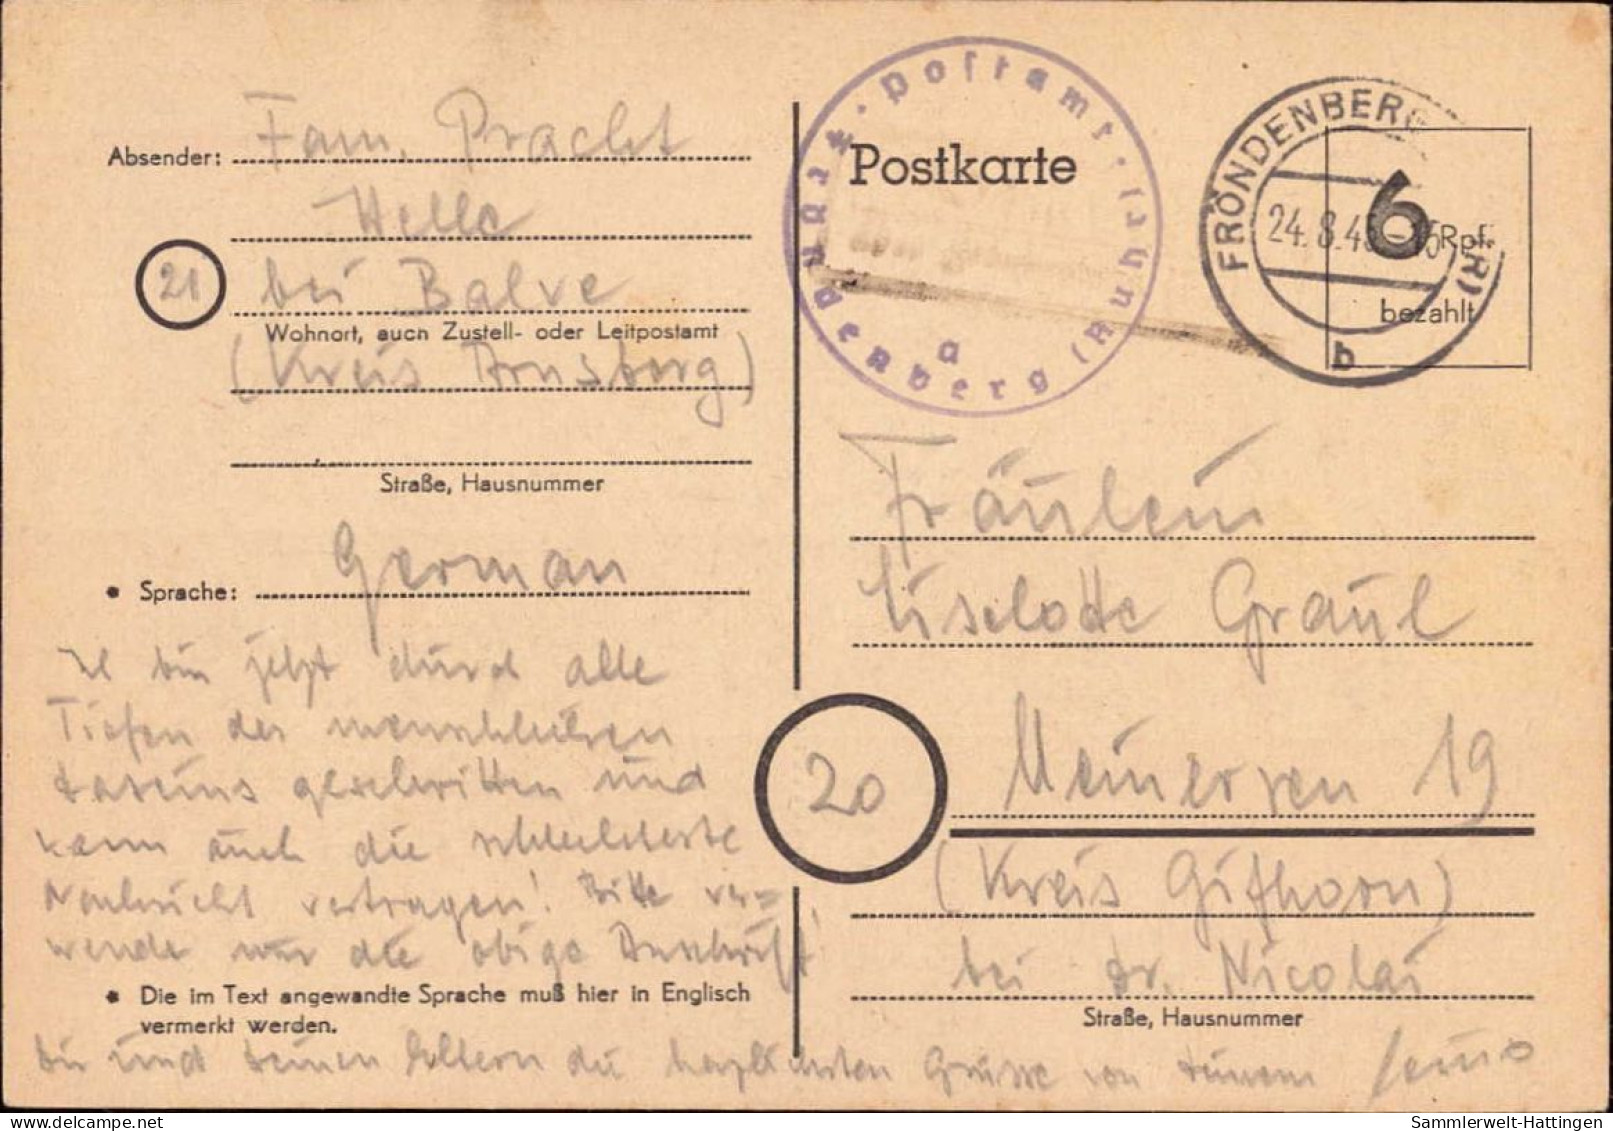 Absender: Fam. Pracht
Helle
21 bei Balve
Wohnort, auch Zustell- oder Leitpostamt
(Kreis Arnsberg)
Straße, Hausnummer
• Sprache: German
Ich bin jetzt durch alle
Tiefen des menschlichen
Daseins geschritten und
kann auch die schlechteste
Nachricht vertragen! Bitte ver-
wende nur die obige Anschrift!
• Die im Text angewandte Sprache muß hier in Englisch
vermerkt werden.
Dir und Deinen Eltern die herzlichsten Grüsse von Deinem
Postkarte
Postamt
Fröndenberg (Ruhr)
a
FRÖNDENBERG (RUHR)
24.8.45
b
6 Rpf.
bezahlt
Fräulein
Liselotte Graul
20
Meinersen 19
(Kreis Gifhorn)
bei Dr. Nicolai
Straße, Hausnummer
Sammlerwelt-Hattingen